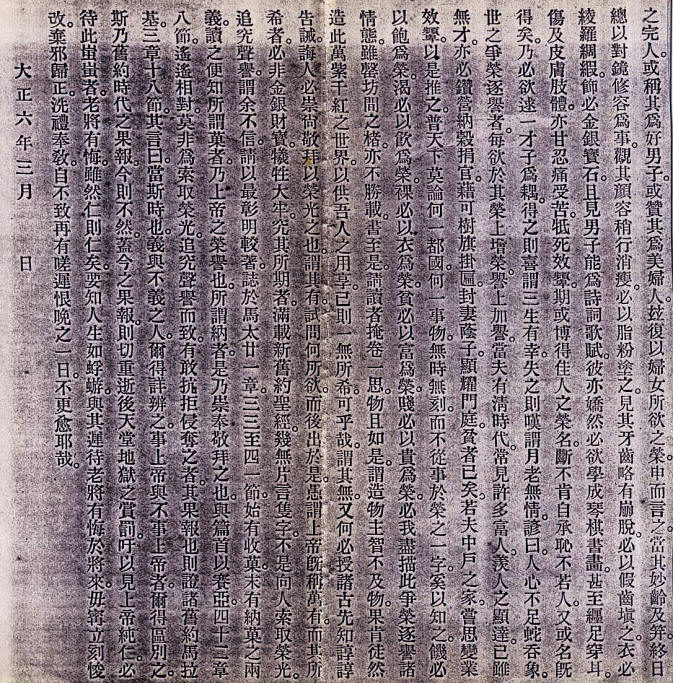 之完人或稱其爲好男子或贊其爲美婦人。茲復以婦女所欲之榮申而言之當其妙齡及筓終日
總以對鏡修容爲事觀其顏容稍行消瘦必以脂粉塗之見其牙齒略有崩脫必以假齒塡之衣必
綾羅綢緞飾必金銀寶石且見男子能爲詩詞歌賦彼亦嬌然必欲學成琴棋書畵甚至纒足穿耳。
傷及皮膚肢體亦甘忍痛受苦牴死效顰期或博得佳人之榮名斷不肯自承恥不若人又或名旣
得矣乃必欲逑一才子爲耦得之則喜謂三生有幸失之則嘆謂月老無情諺曰人心不足蛇吞象。
世之爭榮逐譽者每欲於其榮上增榮譽上加譽當夫有淸時代常見許多富人羨人之顯達已雖
無才亦必鑽營納穀捐官藉可樹旗掛匾封妻蔭子顯耀門庭貧者已矣若夫中戶之家嘗思變業
效顰以是推之普天下莫論何一都國何一事物無時無刻而不從事於榮之一字奚以知之饑必
以飽爲榮渴必以飮爲榮裸必以衣爲榮貧必以富爲榮賤必以貴爲榮必我盡描此爭榮逐譽諸
情態雖罄坊間之楮亦不勝載書至是請讀者掩卷一思物且如是謂造物主智不及物果肯徒然
造此萬紫千紅之世界以供吾人之用享已則一無所希可乎哉謂其無又何必授諸古先知諄諄
告誡誨人必崇尙敬拜以榮光之也謂其有試問何所欲而後出於是愚謂上帝旣稱萬有而其所
希者必非金銀財寶犠牲大牢究其所期者滿載新舊約聖經幾無片言隻字不是向人索取榮光。
追究聲譽謂余不信請以最彰明較著誌於馬太廿一章三三至四一節始有收菓末有納菓之兩
義讀之便知所謂菓者乃上帝之榮譽也所謂納者是乃崇奉敬拜之也與篇首以賽亞四十二章
八節遙遙相對莫非爲索取榮光追究聲譽而致有敢抗拒侵奪之者其果報也則證諸舊約馬拉
基三章十八節其言曰當斯時也義與不義之人爾得詳辨之事上帝與不事上帝者爾得區別之。
斯乃舊約時代之果報今則不然蓋今之果報則切重逝後天堂地獄之賞罰吁以見上帝純仁必
待此蚩蚩者老將有悔雖然仁則仁矣要知人生如蜉蝣與其遲待老將有悔於將來毋寗立刻悛
改棄邪歸正洗禮奉敎自不致再有嗟遲恨晚之一日不更愈耶哉。
大正六年三月　日